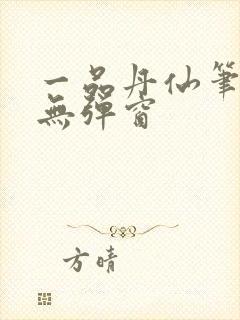 一品丹仙筆
無彈窗
方晴